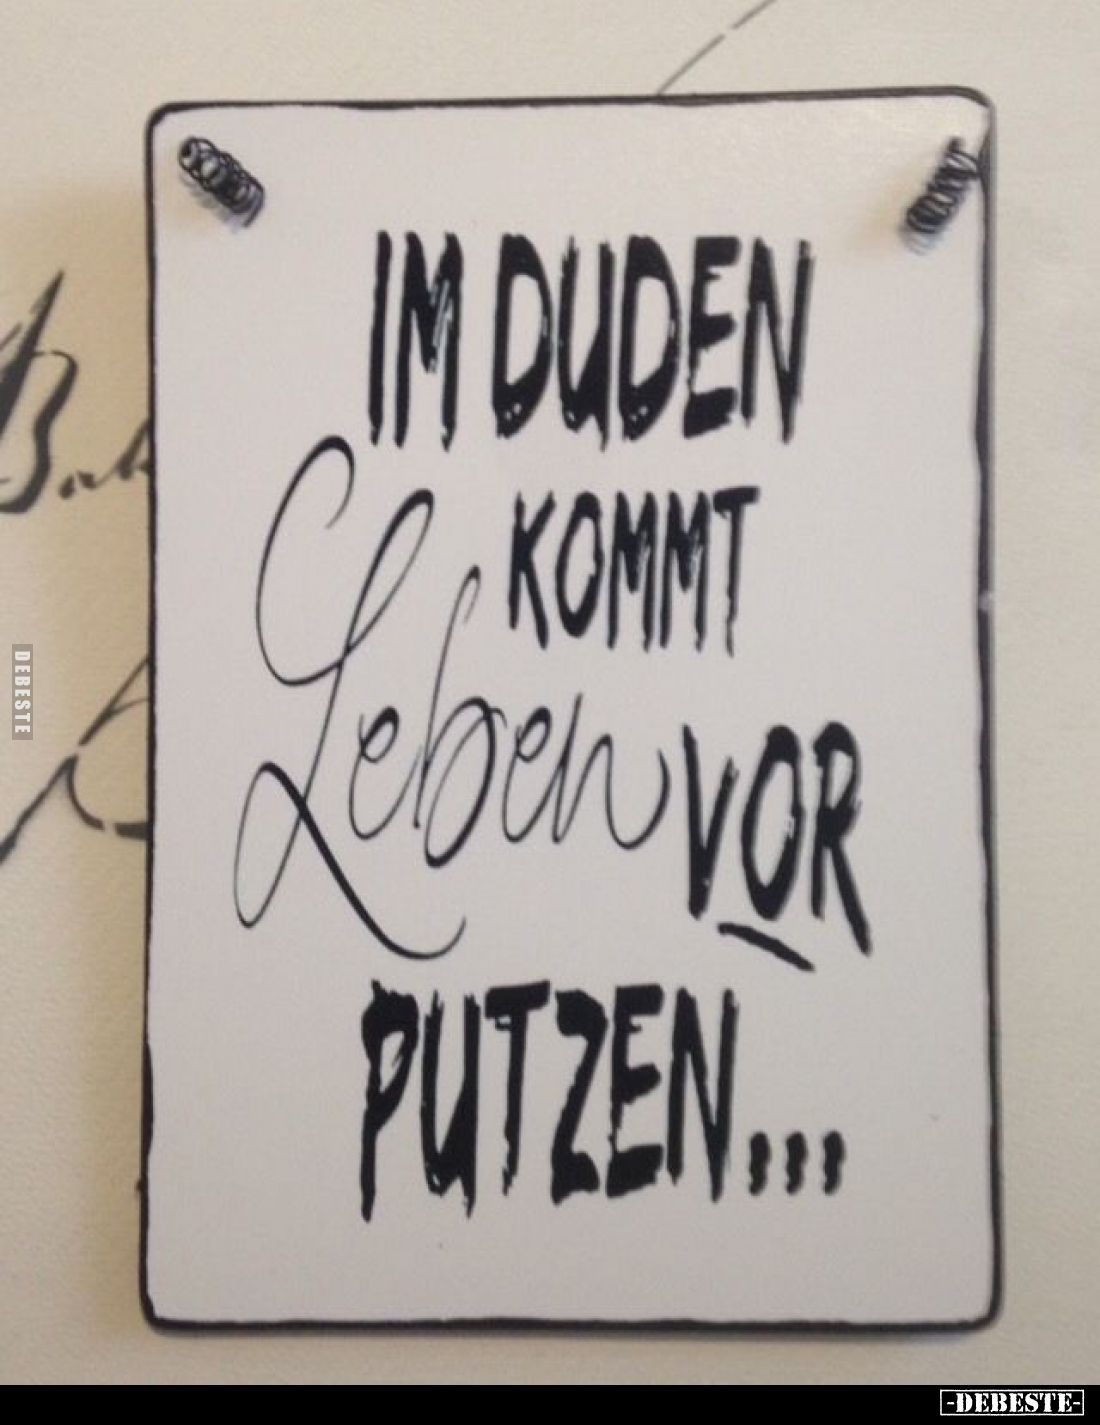 IM DUDEN
KOMMT
Leben VOR
PUTZEN...
DEBESTE
-DEBESTE-